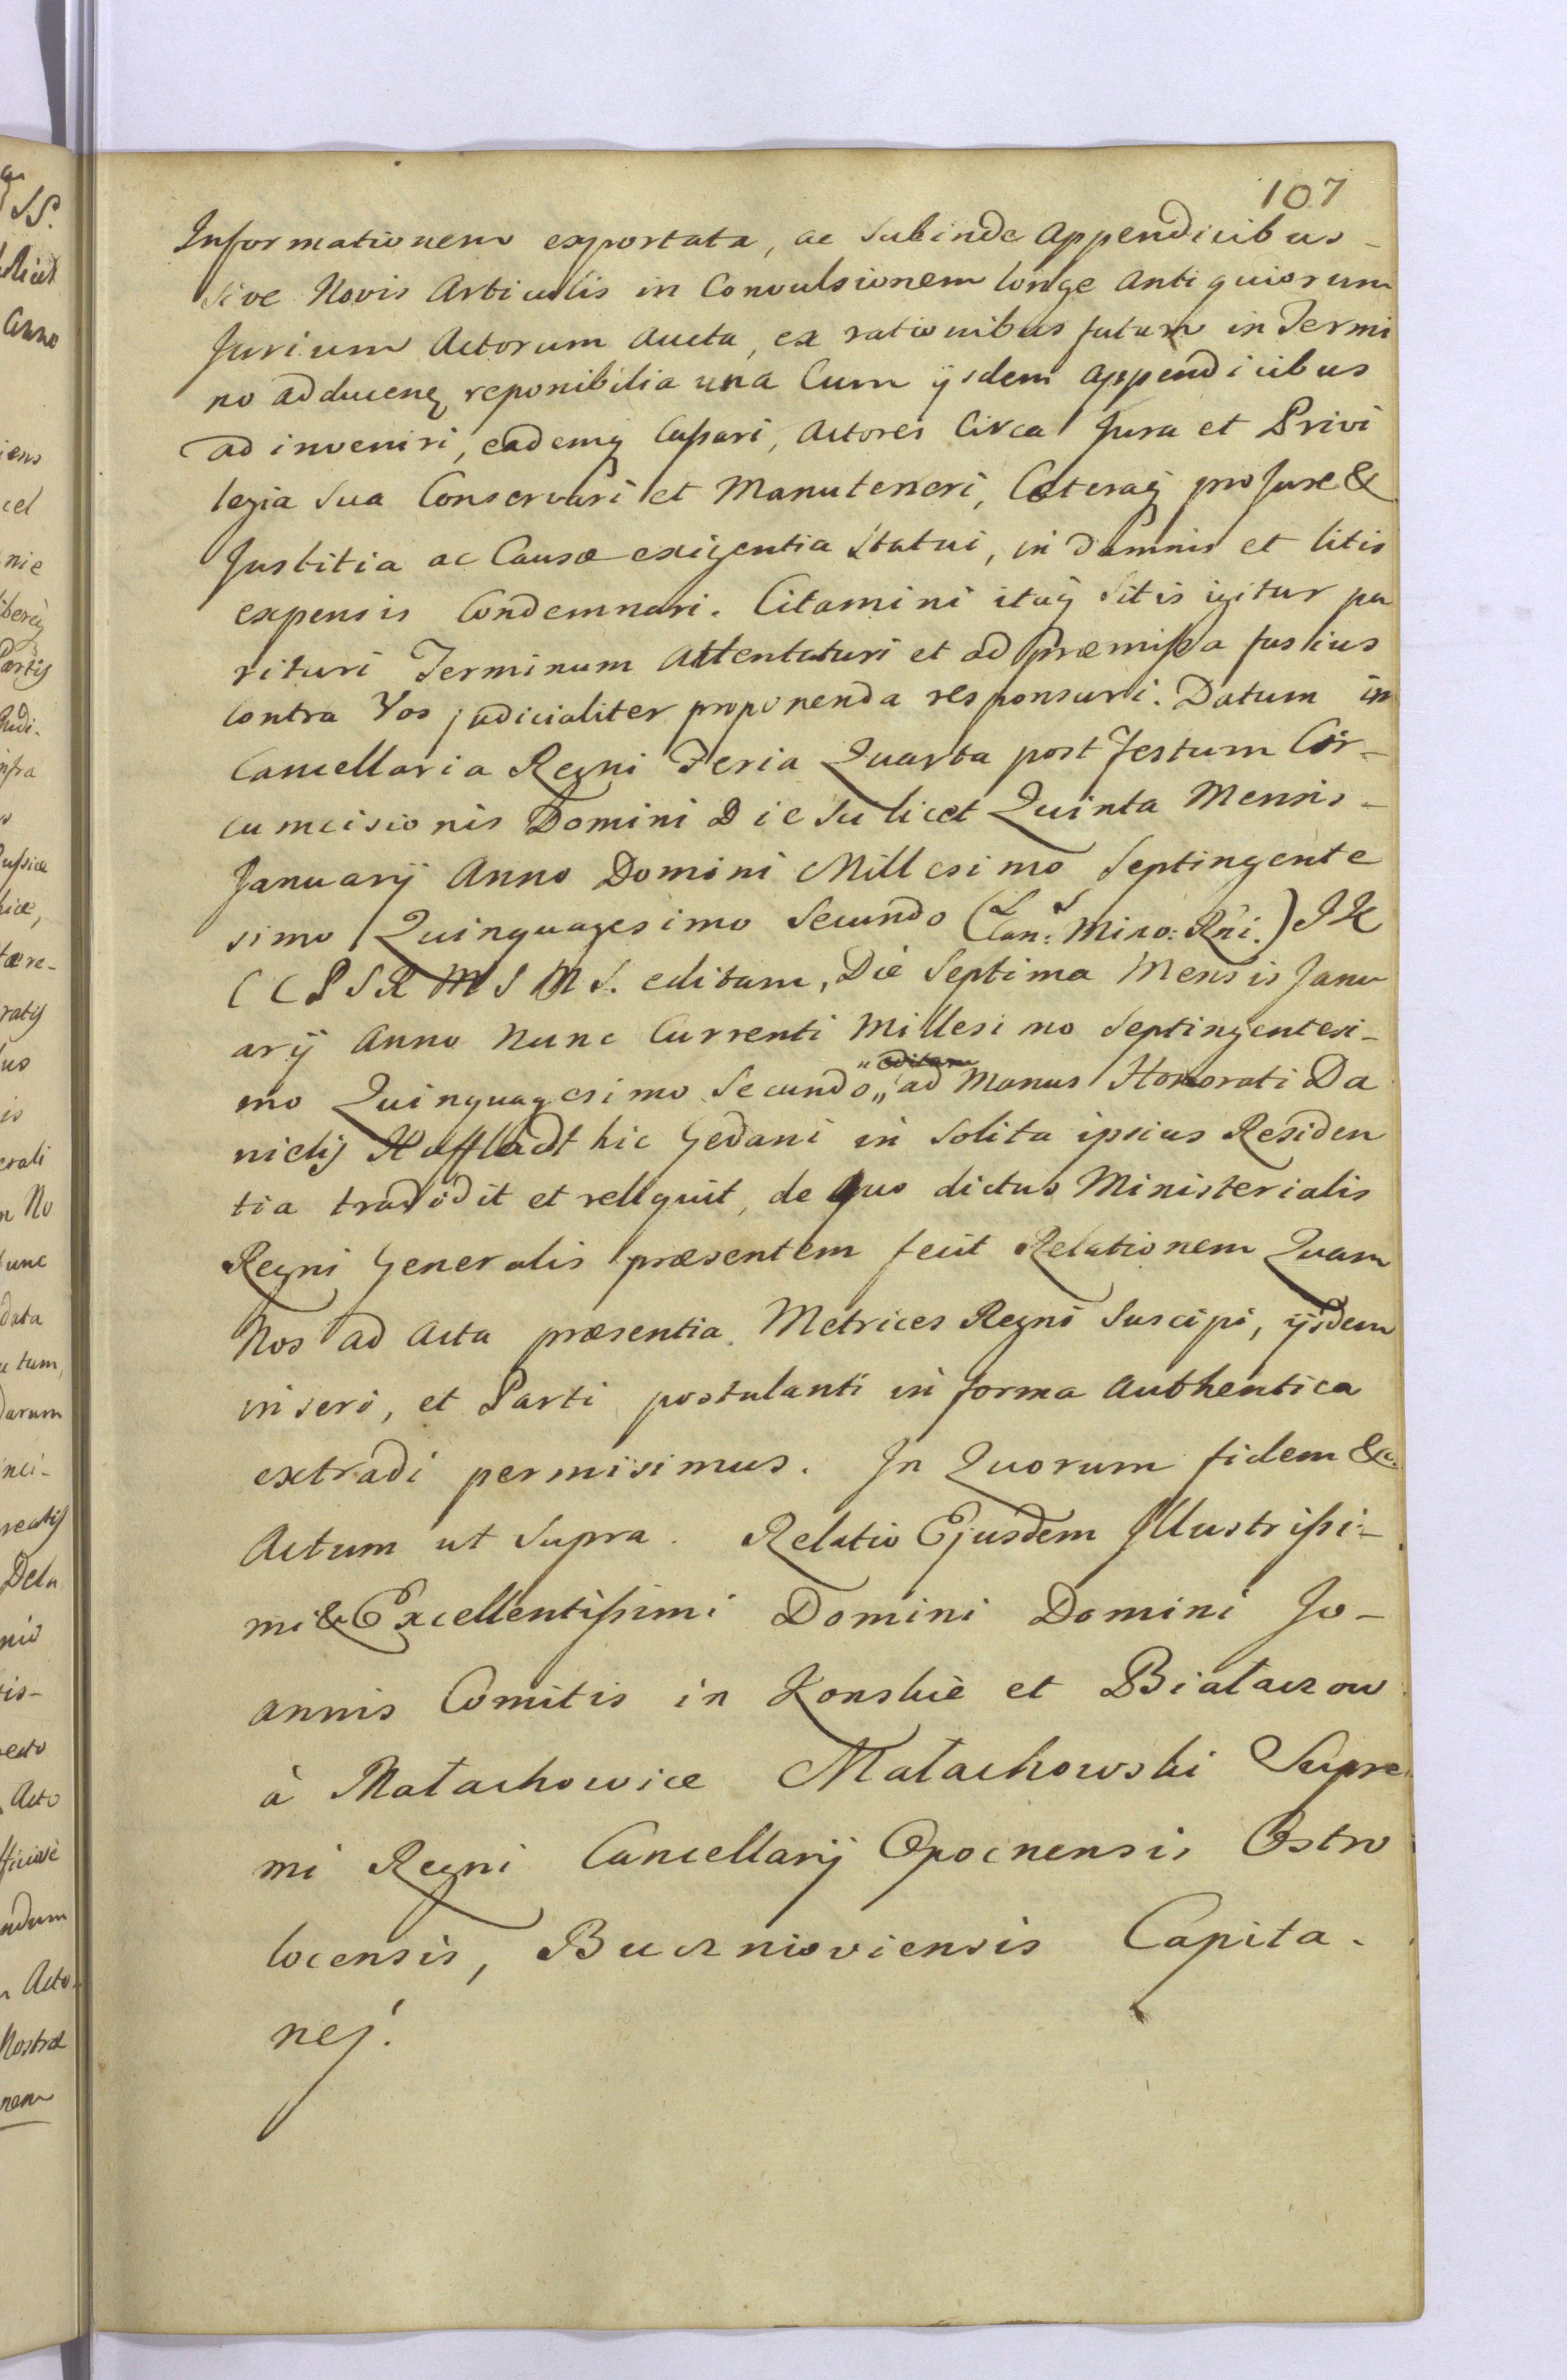 107
Informationem exportata, ac subinde Appendicibus -
sive Novis Articulis in Convulsionem longe Antiquiorum
Jurium Actorum Aucta, ex rationibus futuro in Termi
no adducenꝗ reponibilia una Cum ijsdem Appendicibus
ad inveniri, eademꝗ Cassari, Actores Circa Jura et Privi
legia sua Conservari et Manuteneri, Cæteraꝗ pro Jure &
Justitia ac Causæ exigentia Statui, in damnis et litis
expensis Condemnari. Citamini itaꝗ sitis igitur pa
rituri Terminum Attentaturi et ad præmissa fusius
contra Vos judicialiter proponenda responsuri. Datum in
Cancellaria Regni Feria Quarta post Festum Cir-
cumcisionis Domini Die scilicet Quinta Mensis -
Januarij Anno Domini Millesimo Septingente
simo Quinquagesimo Secundo (L S Can: Mino: Rñi.) J K
C C P S R M S M S. editam, Die Septima Mensis Janu
arij Anno Nunc Currenti Millesimo Septingentesi-
mo Quinquagesimo Secundo „ editam „ ad Manus Honorati Da
nielis Hufflandt hic Gedani in solita ipsius Residen
tia tradidit et reliquit, de quo dictus Ministerialis
Regni Generalis præsentem fecit Relationem Quam
Nos ad Acta præsentia Metrices Regni Suscipi, ijsdem
inseri, et Parti postulanti in forma Authentica
extradi permisimus. In Quorum fidem &c.
Actum ut Supra. Relatio Ejusdem Illustrissi-
mi & Excellentissimi Domini Domini Jo-
annis Comitis in Konskie et Białaczow
à Małachowice Małachowski Supre
mi Regni Cancellarij Opocnensis Ostro
locensis, Bucznioviensis Capita-
nej.